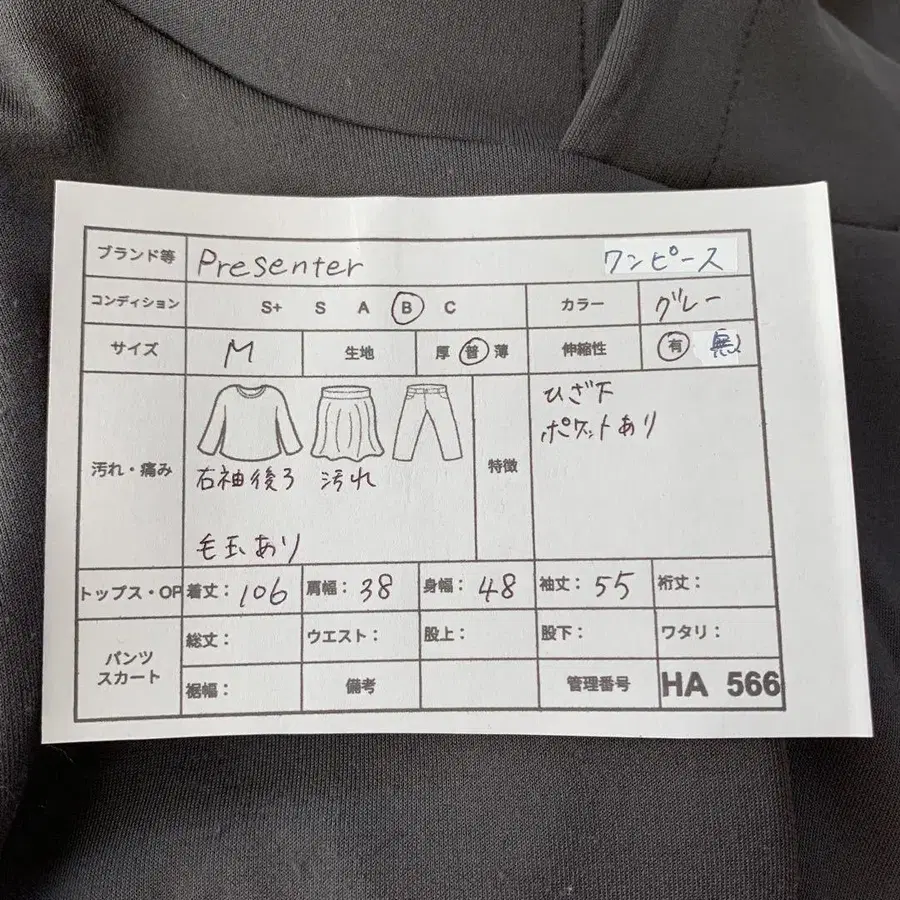 ブランド等 Presenter ワンピース
コンディション S+ S A B C カラー グレー
サイズ M 生地 厚 普 薄 伸縮性 有 無
汚れ・痛み 右袖後ろ 汚れ
毛玉あり
特徴 ひざ下
ポケットあり
トップス・OP 着丈：106 肩幅：38 身幅：48 袖丈：55 裄丈：
パンツ
スカート
総丈： ウエスト： 股上： 股下： ワタリ：
裾幅： 備考 管理番号 HA 566